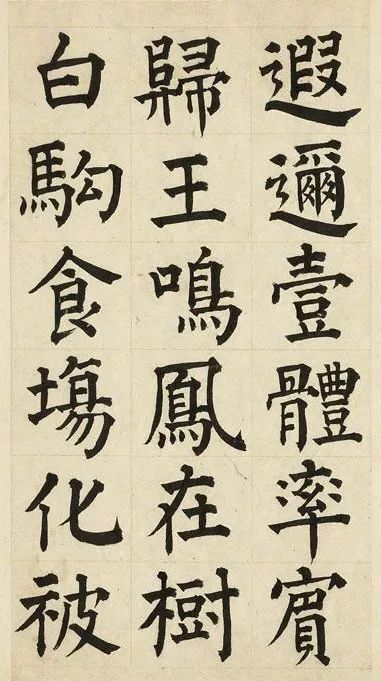 遐邇壹體率賓
歸王鳴鳳在樹
白駒食場化被